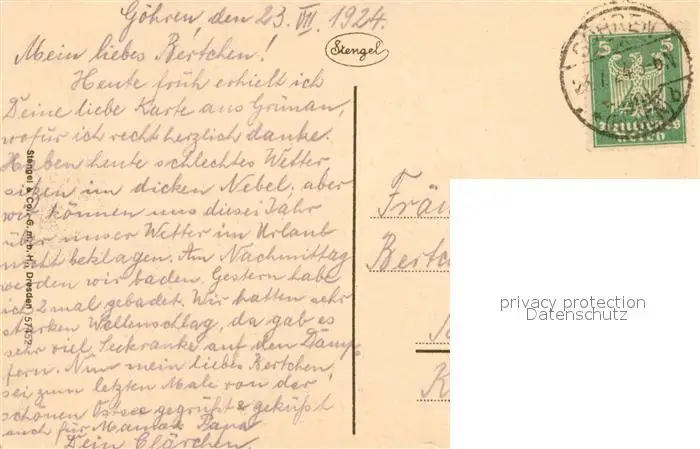 Göhren, den 23. VII. 1924.
Mein liebes Bertchen!
Heute früh erhielt ich
Deine liebe Karte aus Grünau,
wofür ich recht herzlich danke.
Haben heute schlechtes Wetter
sitzen im dicken Nebel, aber
wir können uns dieses Jahr
über unser Wetter im Urlaub
nicht beklagen. Am Nachmittag
werden wir baden. Gestern habe
ich 2 mal gebadet. Wir hatten sehr
starken Wellenschlag, da gab es
sehr viel Seekranke auf den Damp-
fern. Nun mein liebes Bertchen,
sei zum letzten Male von der
schönen Ostsee gegrüßt & geküßt
auch für Mama & Papa
Dein Clärchen.
Stengel
Stengel & Co., G. m. b. H., Dresden 57452
GÖHREN
5 5
Deutsches
Reich
Fräu
Bertc
K
privacy protection
Datenschutz